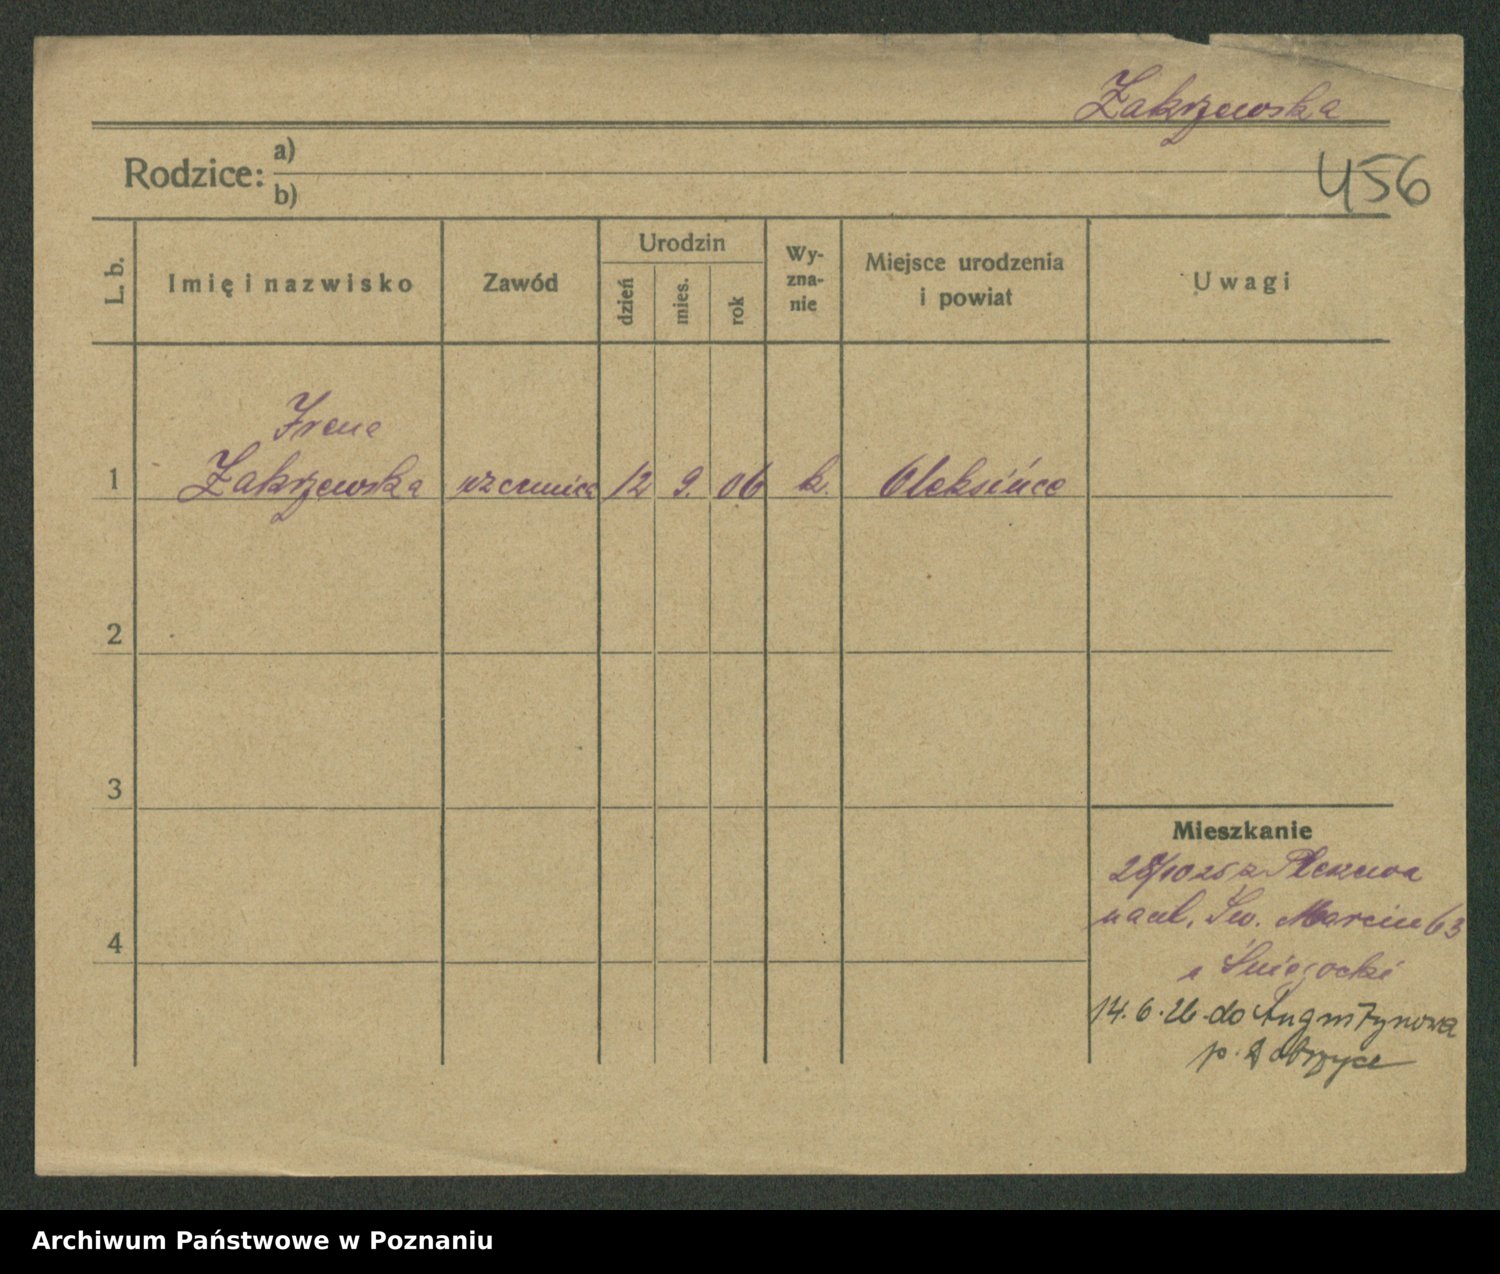 Zakrzewska
456
Rodzice: a)
b)
L. b.
Imię i nazwisko
Zawód
Urodzin
dzień
mies.
rok
Wy-
zna-
nie
Miejsce urodzenia
i powiat
Uwagi
Irena
1 Zakrzewska uczennica 12 9. 06 k. Oleksińce
2
3
4
Mieszkanie
28/10 25 z
na ul. Św. Marcin 63
14. 6. 26. do
p. Dobrzyce
Archiwum Państwowe w Poznaniu